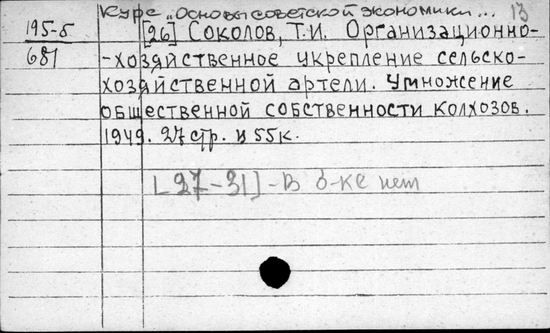 Курс „Основы советской экономики... 13
195-5 [26] Соколов, Т.И. Организационно-
681 -хозяйственное укрепление сельско-
хозяйственной артели. Умножение
общественной собственности колхозов.
1949. 27 стр. и 55к.
[27-31] - В б-ке нет